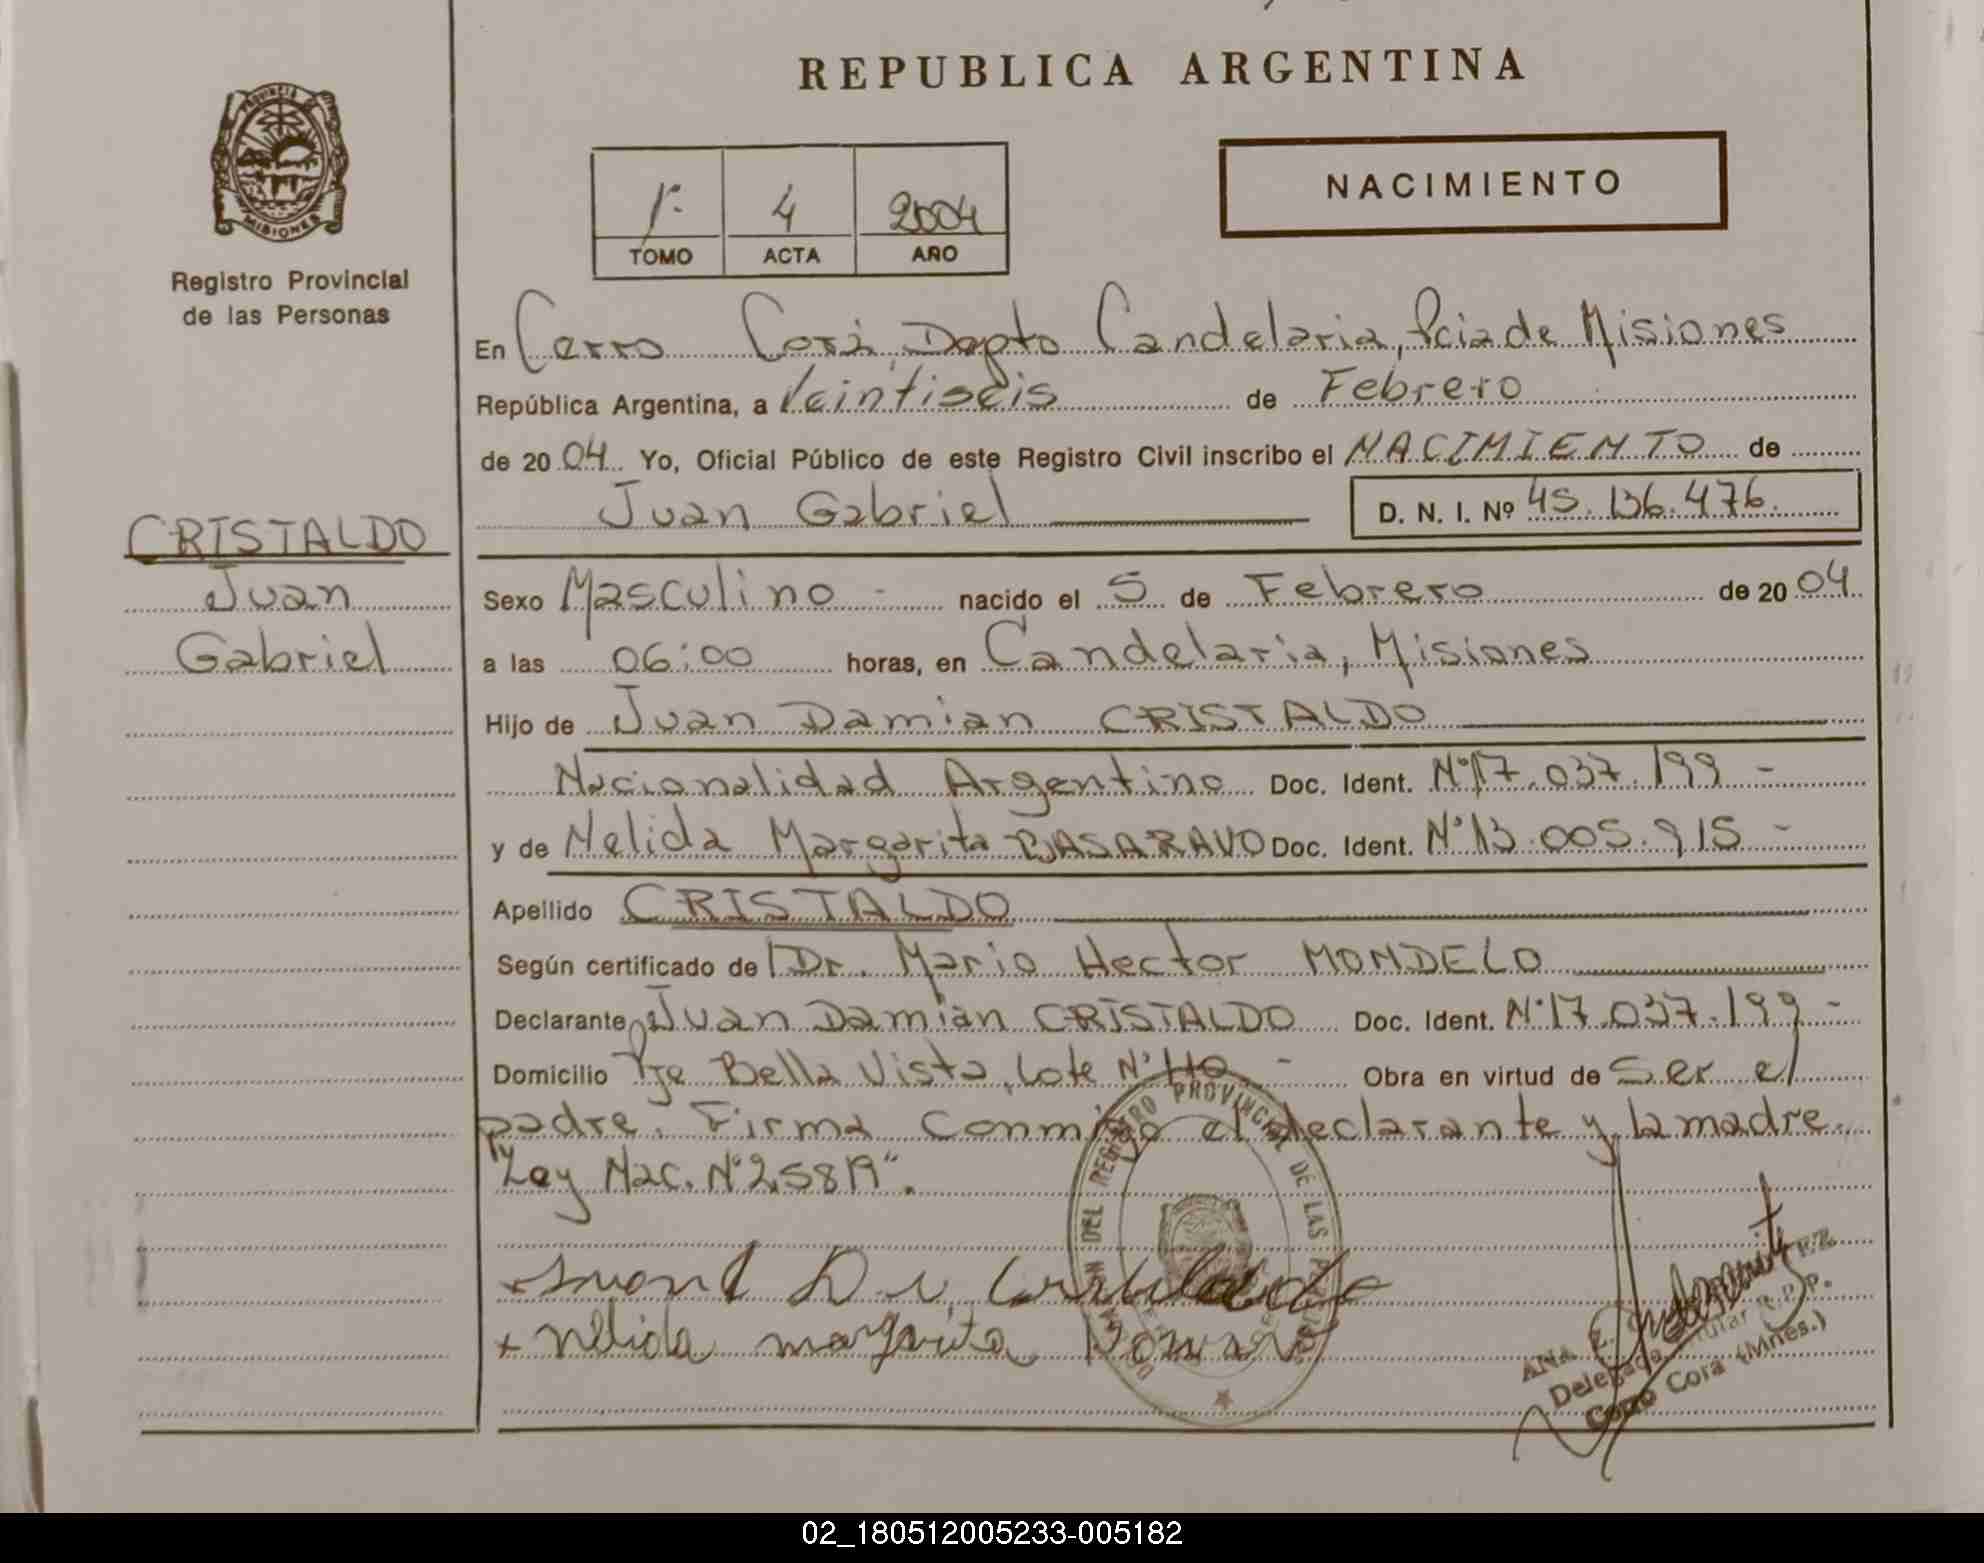 REPUBLICA ARGENTINA
PROVINCIA DE
MISIONES
Registro Provincial
de las Personas
1º 4 2004
TOMO ACTA AÑO
NACIMIENTO
En Cerro Corá, Depto Candelaria, Pcia de Misiones
República Argentina, a Veintiseis de Febrero
de 2004 Yo, Oficial Público de este Registro Civil inscribo el NACIMIENTO de
Juan Gabriel D. N. I. Nº 45.136.476.
CRISTALDO
Juan
Gabriel
Sexo Masculino - nacido el 5 de Febrero de 2004
a las 06:00 horas, en Candelaria, Misiones
Hijo de Juan Damian CRISTALDO
Nacionalidad Argentino Doc. Ident. Nº17.037.199 -
y de Nelida Margarita BASARAVO Doc. Ident. Nº13.005.915 -
Apellido CRISTALDO
Según certificado de Dr. Mario Hector MONDELO
Declarante Juan Damian CRISTALDO Doc. Ident. Nº17.037.199 -
Domicilio Pje Bella Vista, Lote Nº 110 - Obra en virtud de Ser el
padre. Firma conmigo el declarante y la madre.
"Ley Nac. Nº 25819".
DEL REGISTRO PROVINCIAL DE LAS
Juan D.
+ nelida margarita
ANA E.
Delegada Titular R.P.P.
Cerro Cora (Mnes.)
02_180512005233-005182